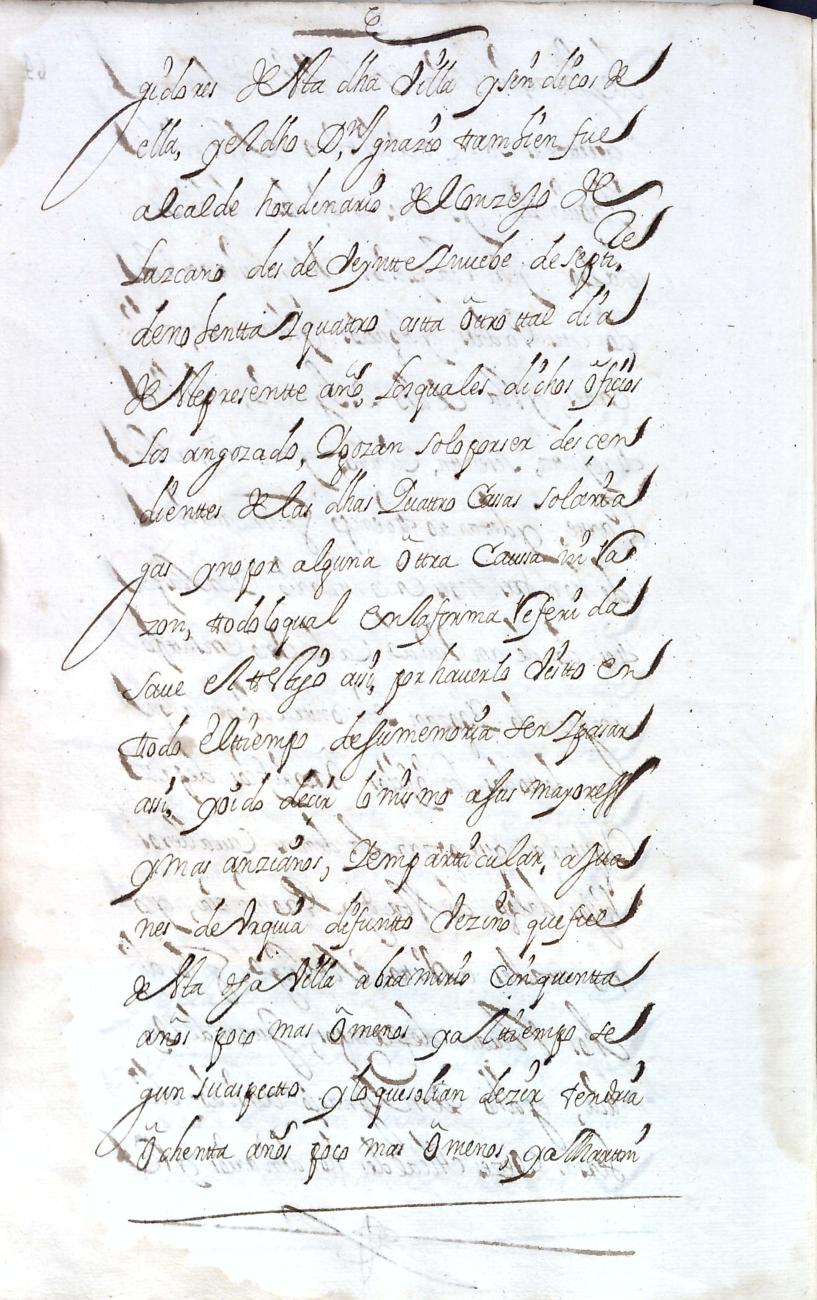 gidores de esta dha Villa y sendicos de
ella, y el dho D.n Ygnazio ttambien fue
alcalde hordinario del Conzejo de
Lazcano des de Veyntte y nuebe de Septi.re
de nobentta y quattro astta ôttro ttal dia
de estte presentte año, Los quales dichos ôfiçios
Los an gozado, y gozan solo por ser descen
dienttes de las dhas Quatro Casas solaria
gas y no por alguna ôttra Caussa ni Ra
zon, ttodo lo qual en la forma Referida
save el ttestigo assi, por haverlo Vistto en
ttodo el ttiempo de su memoria ser y pasar
assi, y oido decir lo mismo a sus mayores
y mas anzianos, y em partticular, a Jua
nes de Vrquia difuntto Vezino que fue
de esta dha Villa abra mirio Cinquentta
años poco mas ô menos y al ttiempo se
gun su aspectto y lo que solian dezir tendria
ôchentta años poco mas ô menos, y a Martin